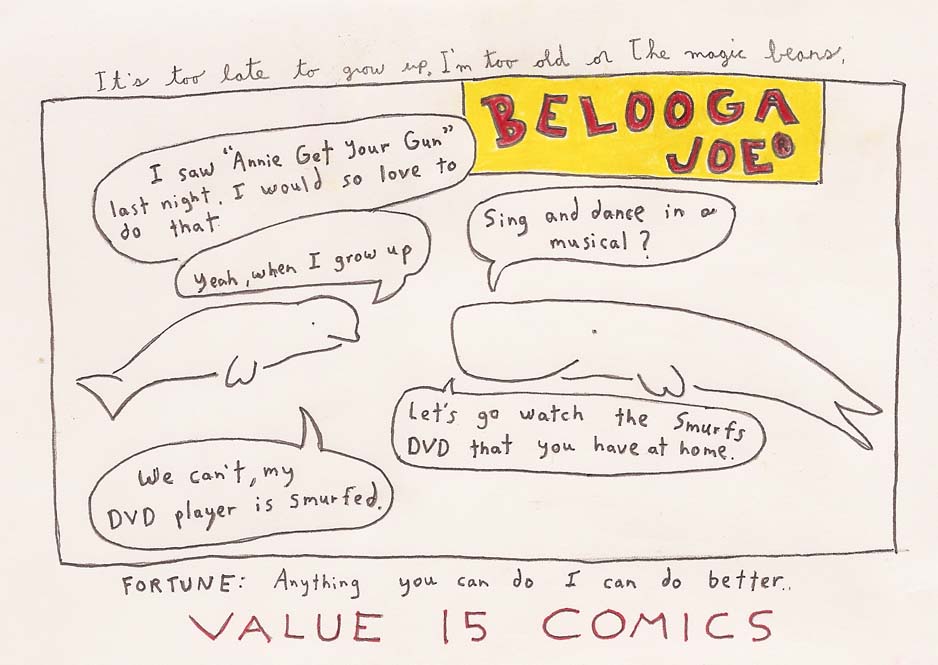 It's too late to grow up, I'm too old or The magic beans.
BELOOGA
JOE®
I saw "Annie Get Your Gun"
last night. I would so love to
do that.
Sing and dance in a
musical?
Yeah, when I grow up
Let's go watch the Smurfs
DVD that you have at home.
We can't, my
DVD player is smurfed.
FORTUNE: Anything you can do I can do better..
VALUE 15 COMICS